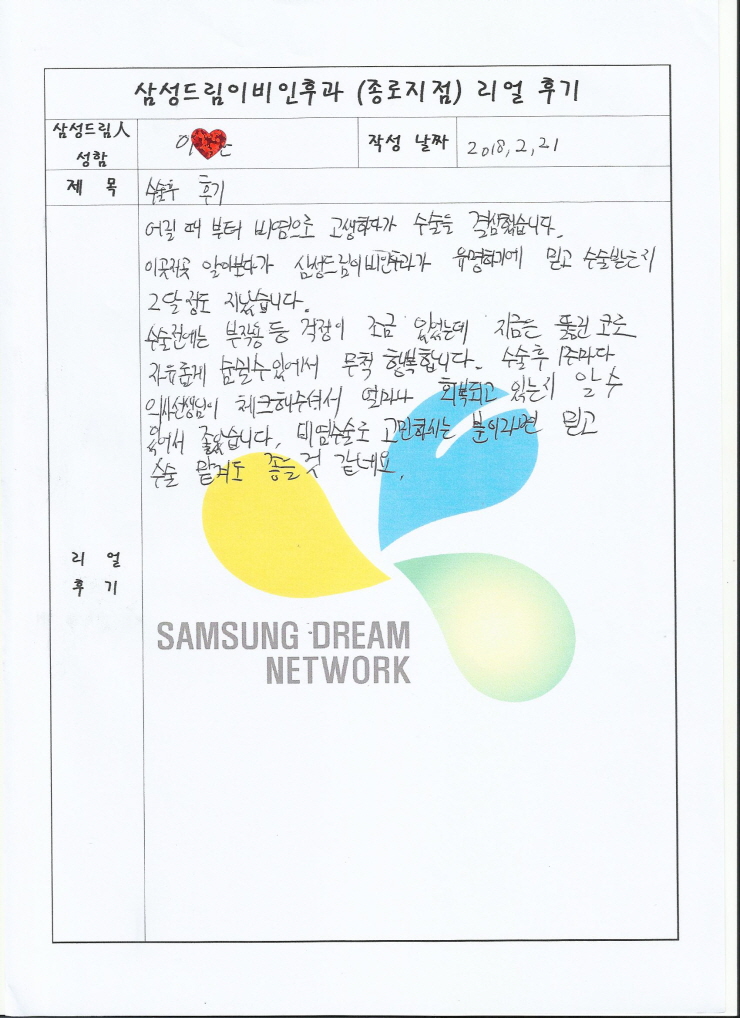 삼성드림이비인후과 (종로지점) 리얼 후기
삼성드림人
성함
이
작성 날짜
2018, 2, 21
제 목
수술후 후기
어릴 때 부터 비염으로 고생하다가 수술을 결심했습니다.
이곳저곳 알아보다가 삼성드림이비인후과가 유명하기에 믿고 수술받은지
2달정도 지났습니다.
수술전에는 부작용 등 걱정이 조금 있었는데 지금은 뚫린 코로
자유롭게 숨쉴수있어서 무척 행복합니다. 수술후 1주마다
의사선생님이 체크해주셔서 얼마나 회복되고 있는지 알 수
있어서 좋았습니다. 비염수술로 고민하시는 분이라면 믿고
수술 맡겨도 좋을 것 같네요.
리 얼
후 기
SAMSUNG DREAM
NETWORK